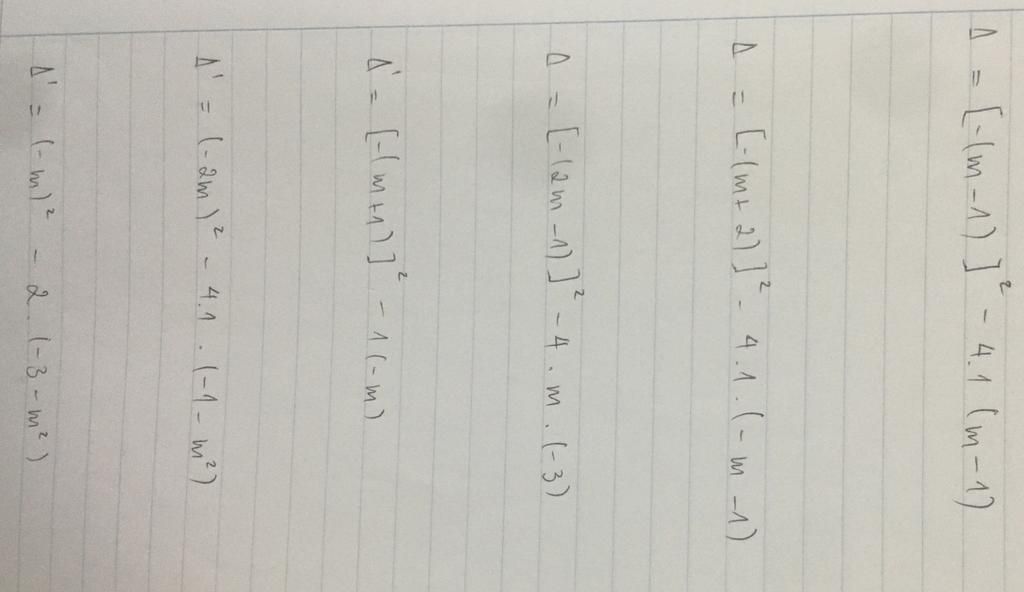 Δ = [-(m-1)]² - 4.1(m-1)
Δ = [-(m+2)]² - 4.1.(-m-1)
Δ = [-(2m-1)]² - 4.m.(-3)
Δ' = [-(m+1)]² - 1(-m)
Δ' = (-2m)² - 4.1.(-1-m²)
Δ' = (-m)² - 2.(-3-m²)